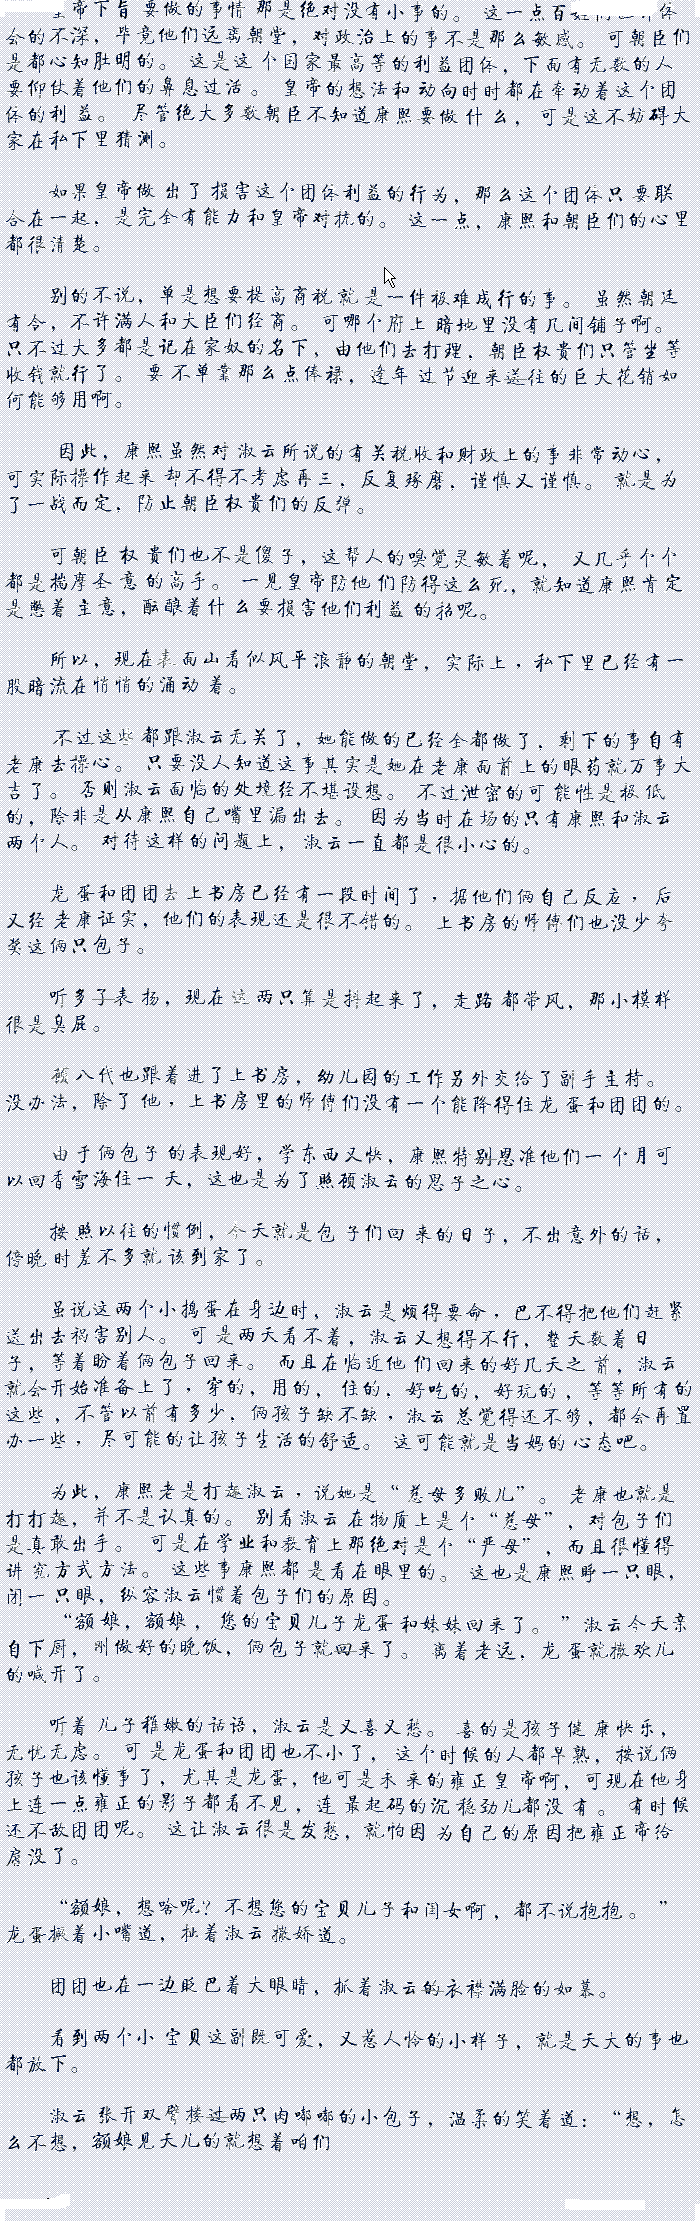 皇帝下旨要做的事情那是绝对没有小事的。 这一点百姓们也许体
会的不深，毕竟他们远离朝堂，对政治上的事不是那么敏感。 可朝臣们
是都心知肚明的。 这是这个国家最高等的利益团体，下面有无数的人
要仰仗着他们的鼻息过活。 皇帝的想法和动向时时都在牵动着这个团
体的利益。 尽管绝大多数朝臣不知道康熙要做什么，可是这不妨碍大
家在私下里猜测。
如果皇帝做出了损害这个团体利益的行为，那么这个团体只要联
合在一起，是完全有能力和皇帝对抗的。 这一点，康熙和朝臣们的心里
都很清楚。
别的不说，单是想要提高商税就是一件极难成行的事。 虽然朝廷
有令，不许满人和大臣们经商。 可哪个府上暗地里没有几间铺子啊。
只不过大多都是记在家奴的名下，由他们去打理，朝臣权贵们只管坐等
收钱就行了。 要不单靠那么点俸禄，逢年过节迎来送往的巨大花销如
何能够用啊。
因此，康熙虽然对淑云所说的有关税收和财政上的事非常动心，
可实际操作起来却不得不考虑再三，反复琢磨，谨慎又谨慎。 就是为
了一战而定，防止朝臣权贵们的反弹。
可朝臣权贵们也不是傻子，这帮人的嗅觉灵敏着呢， 又几乎个个
都是揣摩圣意的高手。 一见皇帝防他们防得这么死，就知道康熙肯定
是憋着主意，酝酿着什么要损害他们利益的招呢。
所以，现在表面山看似风平浪静的朝堂，实际上，私下里已经有一
股暗流在悄悄的涌动着。
不过这些都跟淑云无关了，她能做的已经全都做了，剩下的事自有
老康去操心。 只要没人知道这事其实是她在老康面前上的眼药就万事大
吉了。 否则淑云面临的处境经不堪设想。 不过泄密的可能性是极低
的，除非是从康熙自己嘴里漏出去。 因为当时在场的只有康熙和淑云
两个人。 对待这样的问题上，淑云一直都是很小心的。
龙蛋和团团去上书房已经有一段时间了，据他们俩自己反应，后
又经老康证实，他们的表现还是很不错的。 上书房的师傅们也没少夸
奖这俩只包子。
听多子表扬，现在这两只算是抖起来了，走路都带风，那小模样
很是臭屁。
顾八代也跟着进了上书房，幼儿园的工作另外交给了副手主持。
没办法，除了他，上书房里的师傅们没有一个能降得住龙蛋和团团的。
由于俩包子的表现好，学东西又快，康熙特别恩准他们一个月可
以回香雪海住一天，这也是为了照顾淑云的思子之心。
按照以往的惯例，今天就是包子们回来的日子，不出意外的话，
傍晚时差不多就该到家了。
虽说这两个小捣蛋在身边时，淑云是烦得要命，巴不得把他们赶紧
送出去祸害别人。 可是两天看不着，淑云又想得不行，整天数着日
子，等着盼着俩包子回来。 而且在临近他们回来的好几天之前，淑云
就会开始准备上了，穿的，用的，住的，好吃的，好玩的，等等所有的
这些，不管以前有多少，俩孩子缺不缺，淑云总觉得还不够，都会再置
办一些，尽可能的让孩子生活的舒适。 这可能就是当妈的心态吧。
为此，康熙老是打趣淑云，说她是“慈母多败儿”。 老康也就是
打打趣，并不是认真的。 别看淑云在物质上是个“慈母”，对包子们
是真敢出手。 可是在学业和教育上那绝对是个“严母”，而且很懂得
讲究方式方法。 这些事康熙都是看在眼里的。 这也是康熙睁一只眼，
闭一只眼，纵容淑云惯着包子们的原因。
“额娘，额娘，您的宝贝儿子龙蛋和妹妹回来了。”淑云今天亲
自下厨，刚做好的晚饭，俩包子就回来了。 离着老远，龙蛋就撒欢儿
的喊开了。
听着儿子稚嫩的话语，淑云是又喜又愁。 喜的是孩子健康快乐，
无忧无虑。 可是龙蛋和团团也不小了，这个时候的人都早熟，按说俩
孩子也该懂事了，尤其是龙蛋，他可是未来的雍正皇帝啊，可现在他身
上连一点雍正的影子都看不见，连最起码的沉稳劲儿都没有。 有时候
还不敌团团呢。 这让淑云很是发愁，就怕因为自己的原因把雍正帝给
腐没了。
“额娘，想啥呢？不想您的宝贝儿子和闺女啊，都不说抱抱。”
龙蛋撅着小嘴道，扯着淑云撒娇道。
团团也在一边眨巴着大眼睛，抓着淑云的衣襟满脸的如慕。
看到两个小宝贝这副既可爱，又惹人怜的小样子，就是天大的事也
都放下。
淑云张开双臂搂过两只肉嘟嘟的小包子，温柔的笑着道：“想，怎
么不想，额娘见天儿的就想着咱们